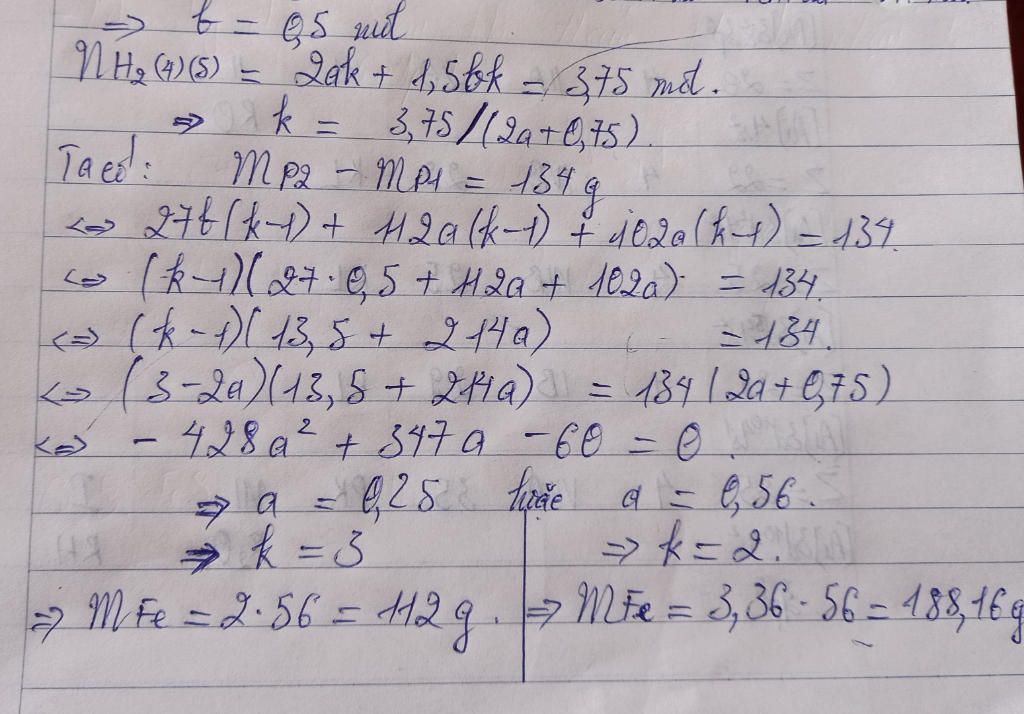 ⇒ b = 0,5 mol
nH₂(4)(5) = 2ak + 1,5bk = 3,75 mol.
⇒ k = 3,75/(2a+0,75).
Ta có: mP2 - mP1 = 134g
⇔ 27b(k-1) + 112a(k-1) + 102a(k-1) = 134.
⇔ (k-1)(27·0,5 + 112a + 102a) = 134.
⇔ (k-1)(13,5 + 214a) = 134.
⇔ (3-2a)(13,5 + 214a) = 134(2a+0,75)
⇔ - 428a² + 347a - 60 = 0.
⇒ a = 0,25 hoặc a = 0,56.
⇒ k = 3 ⇒ k = 2.
⇒ mFe = 2·56 = 112g. ⇒ mFe = 3,36·56 = 188,16g